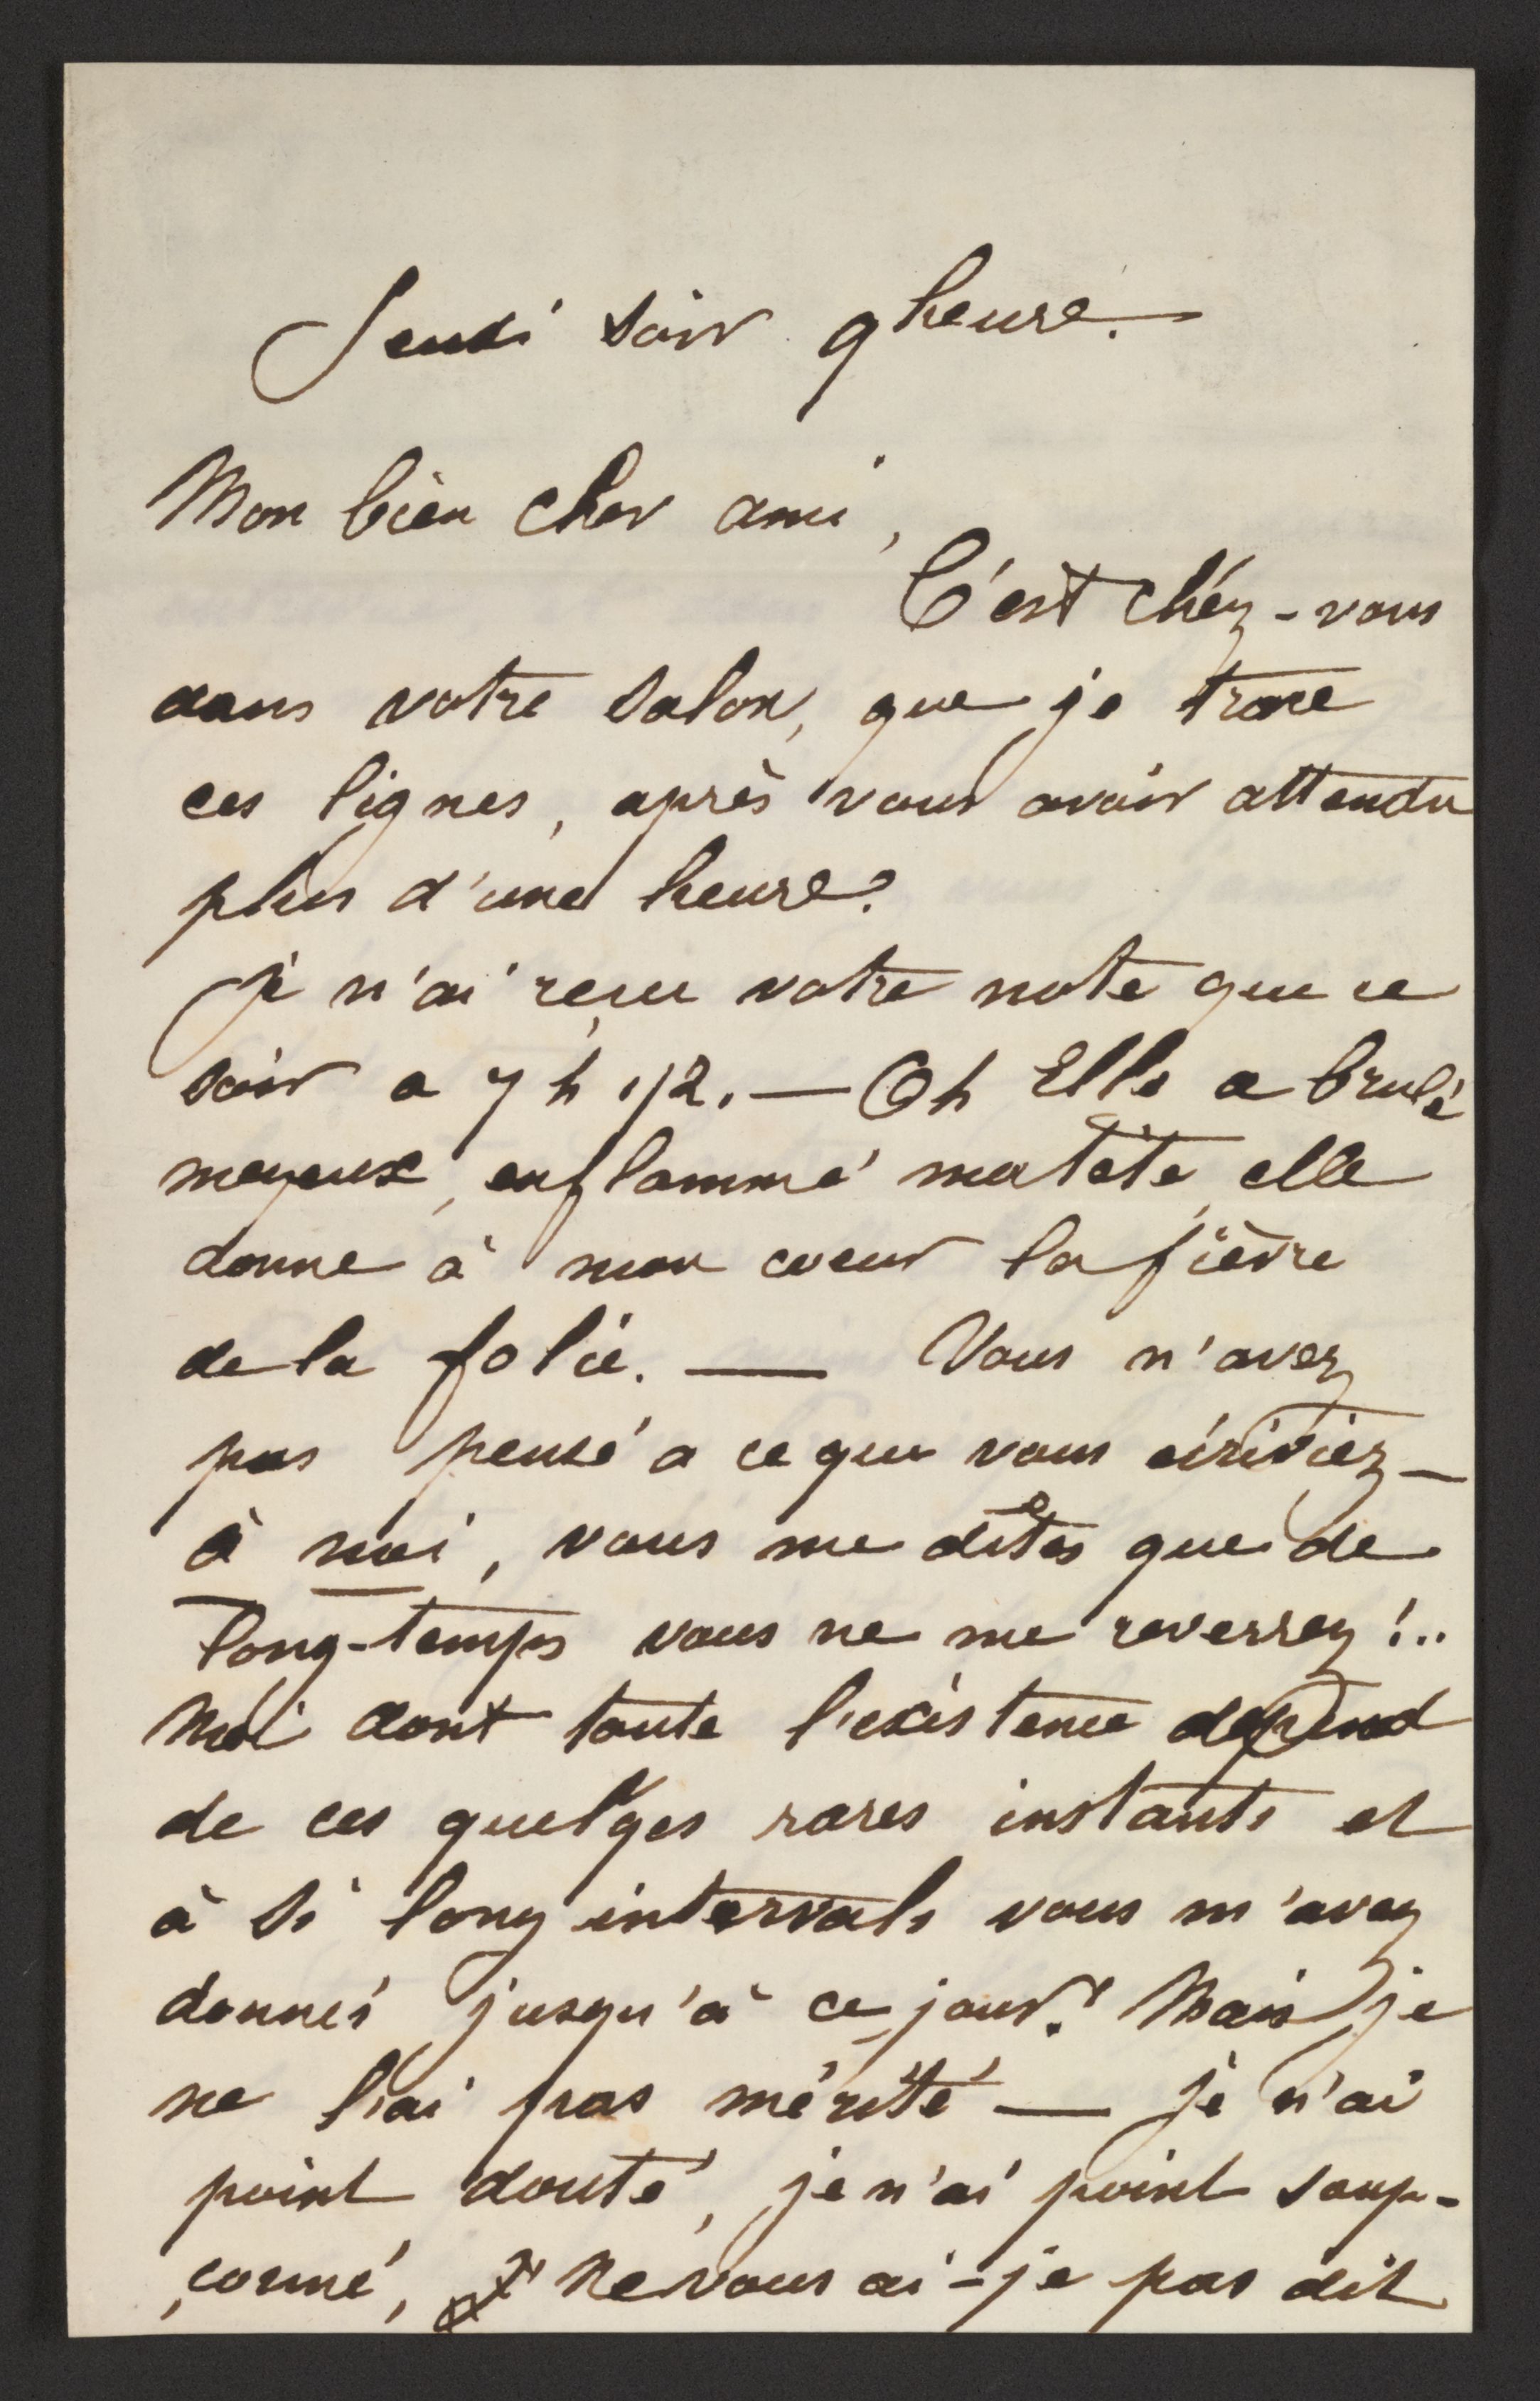 Jeudi soir 9 heure.
Mon bien cher ami,
C'est chéz-vous
dans votre salon, que je trace
ces lignes, après vous avoir attendu
plus d'une heure.
Je n'ai reçu votre note que ce
soir a 7 h 1/2. — Oh Elle a brulé
mes yeux, enflammé ma tête, elle
donne à mon coeur la fièvre
de la folie. — Vous n'avez
pas pensé a ce que vous écriviez —
à moi, vous me dîtes que de
long-temps vous ne me reverrez !..
Moi dont toute l'existence dépend
de ces quelques rares instants et
à si long intervals vous m'avez
donnés jusqu'à ce jour! Mais je
ne l'ai pas mérité — je n'ai
point douté, je n'ai point soup-
çonné, Ne vous ai-je pas dit